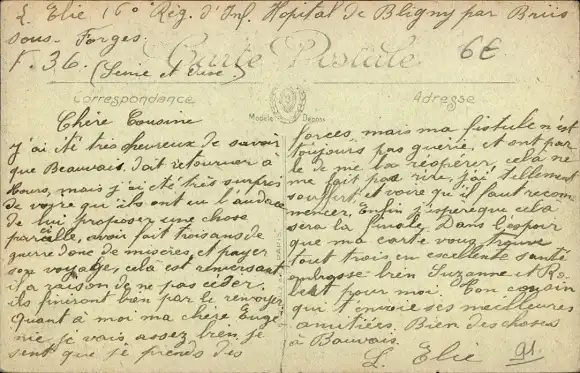 L. Elie 16° Rég. d'Inf. Hopital de Bligny par Briis
sous-Forges.
F. 36. (Seine et Oise.)
6€
Carte Postale
Correspondance
Adresse
Modèle Déposé
Chère Cousine
J'ai été très heureux de savoir
que Beauvais doit retourner à
Tours, mais j'ai été très surpris
de voire qu'ils ont eu l'audace
de lui proposer une chose
pareille, avoir fait trois ans de
guerre donc de misères, et payer
son voyage, cela est renversant
il a raison de ne pas céder.
ils finiront bien par le renvoyer
Quant à moi ma chère Eugé
nie je vais assez bien je
sent que je prends des
forces, mais ma fistule n'est
toujours pas guérie, et ont par
le de me la réopérer, cela ne
me fait pas rire, j'ai tellement
souffert, et voire qu'il faut recom
mencer, Enfin j'espère que cela
sera la finale. Dans l'espoir
que ma carte vous trouve
tout trois en excellente santé
embrasse bien Suzanne et Ro
bert pour moi. Ton cousin
qui t'envoie ses meilleures
amitiées. Bien des choses
à Bauvais.
L. Elie
91.